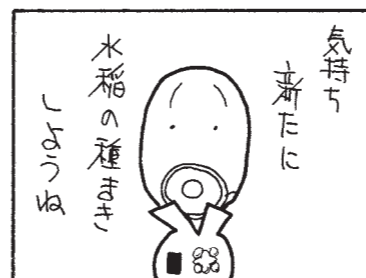 気持ち
新たに
水稲の種まき
しようね